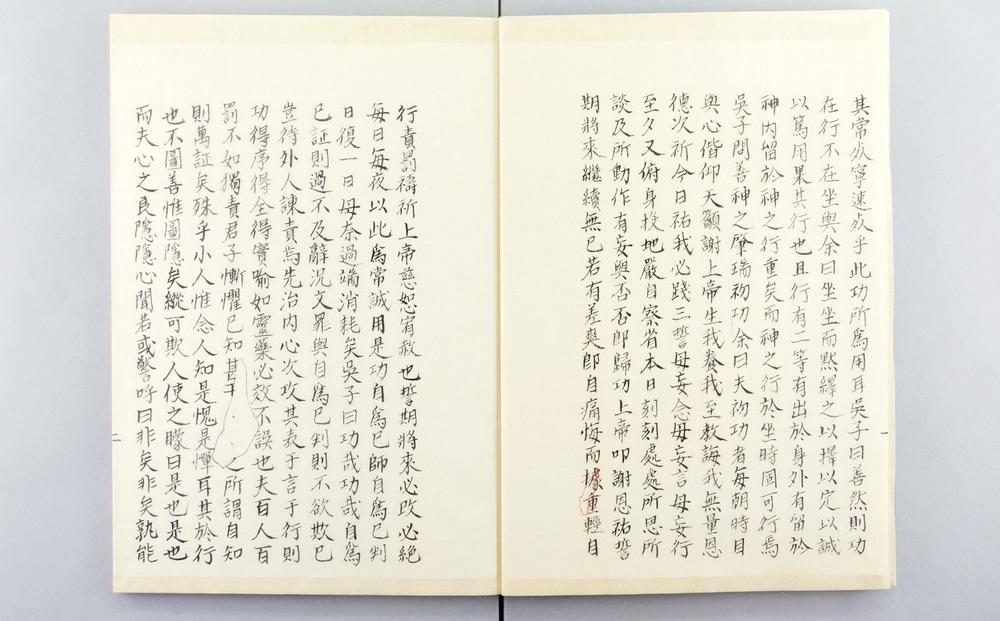 其常㱏寧速㱏乎此功所爲用耳吳子曰善然則功
在行不在坐與余曰坐坐而默繹之以擇以定以誠
以篤用果其行也且行有二等有出於身外有畱於
神内畱於神之行重矣而神之行於坐時固可行焉
吳子問善神之肇瑞初功余曰夫初功者每朝時目
與心偕仰天籲謝上帝生我養我至教誨我無量恩
德次祈今日祐我必踐三誓毋妄念毋妄言毋妄行
至夕又俯身投地嚴自察省本日刻刻處處所思所
談及所動作有妄與否否卽歸功上帝叩謝恩祐誓
期將來繼續無已若有差爽卽自痛悔而據重輕自
行責罰禱祈上帝慈恕宥赦也誓期將來必改必絶
每日每夜以此爲常誠用是功自爲已師自爲已判
日復一日毋奈過端消耗矣吳子曰功哉功哉自爲
已証則過不及辭況文罪與自爲已判則不欲欺已
豈待外人諫責焉先治内心次攻其表于言于行則
功得序得全得實喻如靈藥必效不誤也夫百人百
罰不如獨責君子慚懼已知甚于之所謂自知
則萬証矣殊乎小人惟念人知是愧是憚耳其於行
也不圖善惟圖隱矣縱可欺人使之矇曰是也是也
而夫心之良隱隱心聞若或警呼曰非矣非矣孰能
一
二